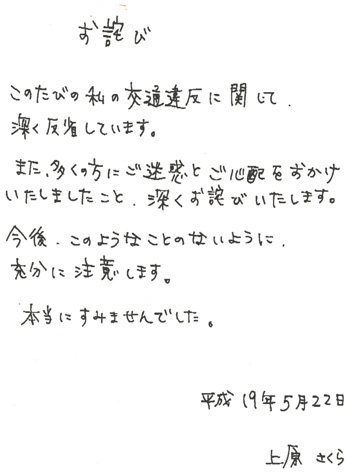 お詫び
このたびの私の交通違反に関して、
深く反省しています。
また、多くの方にご迷惑とご心配をおかけ
いたしましたこと、深くお詫びいたします。
今後、このようなことのないように、
充分に注意します。
本当にすみませんでした。
平成19年5月22日
上原さくら